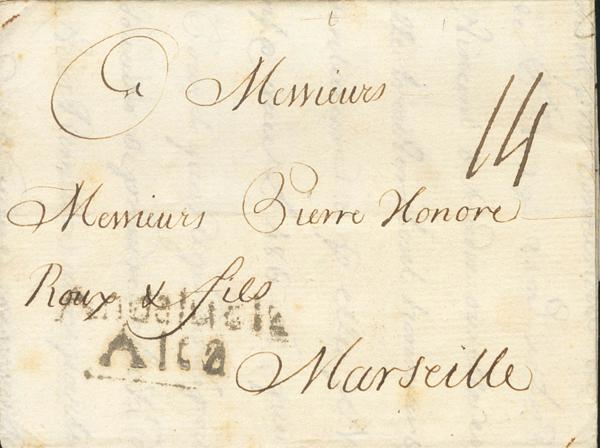 a Messieurs
14
Messieurs Pierre Honore
Roux & fils
Andalucia
Alta
Marseille